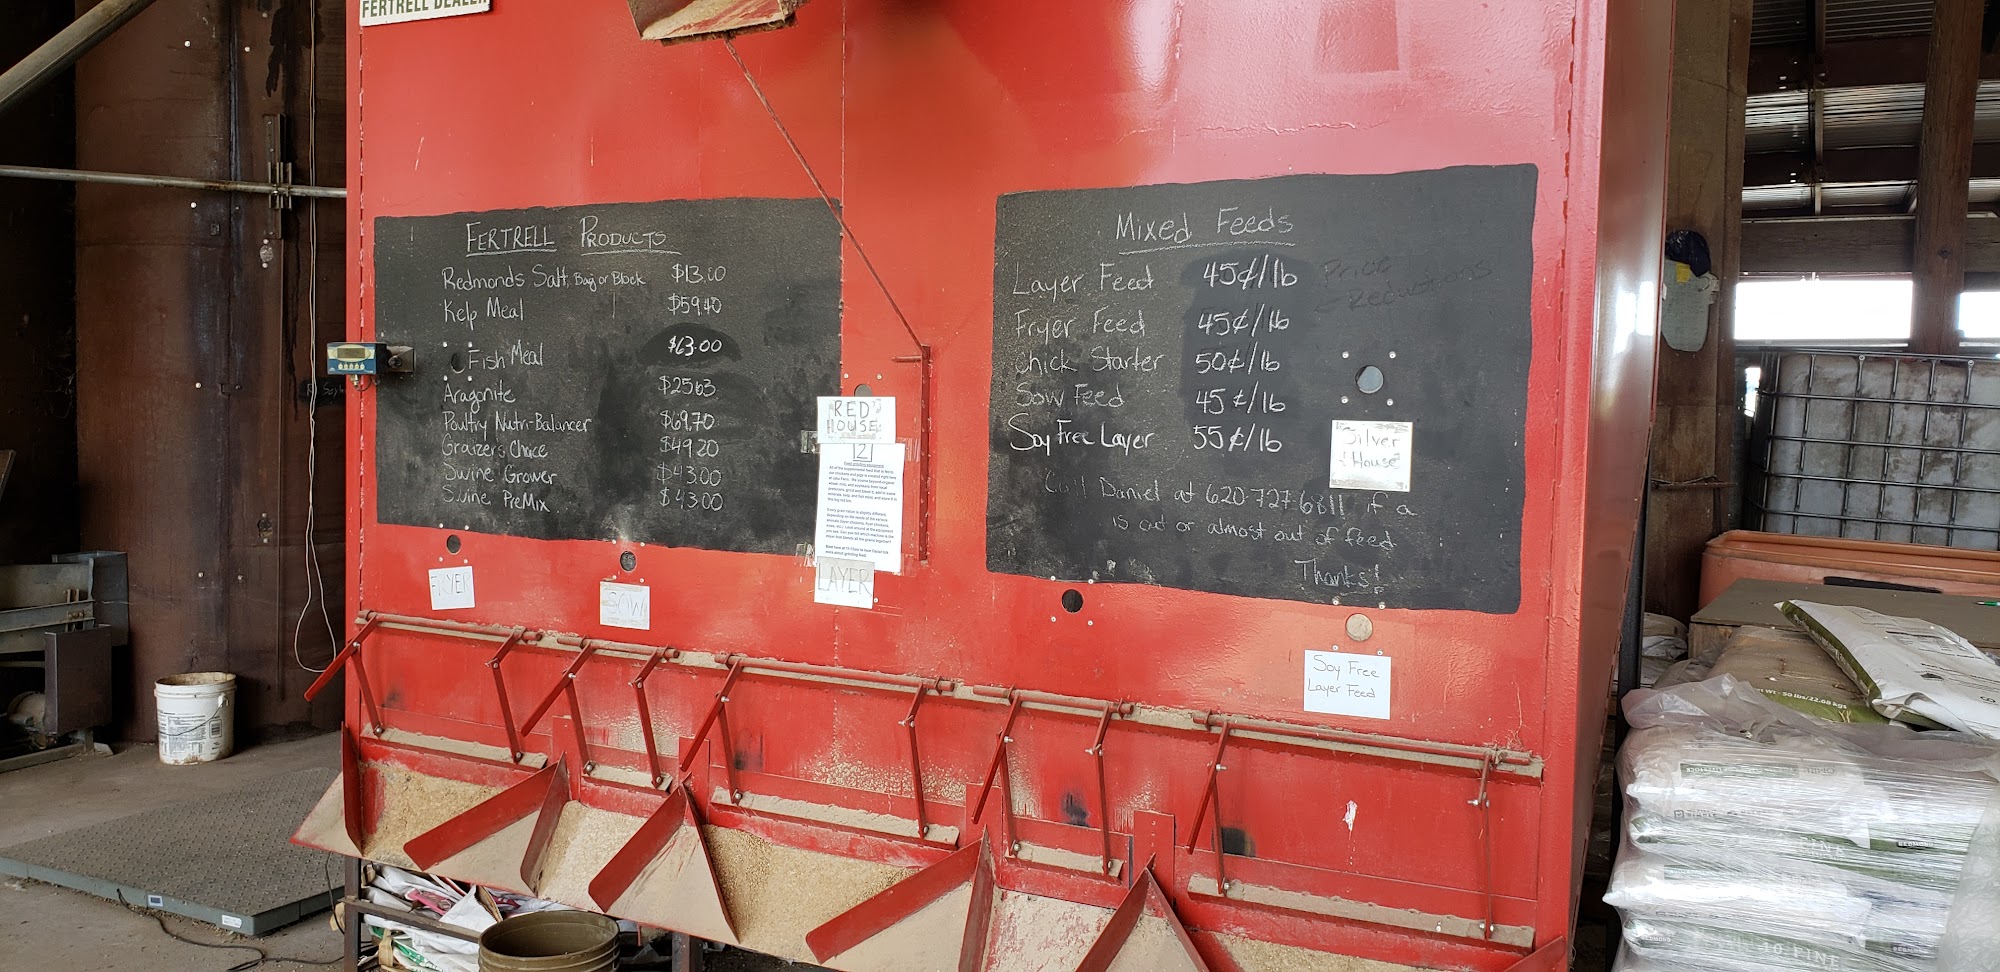 FERTRELL DEALER
FERTRELL PRODUCTS
Redmonds Salt, Bag or Block $13.00
Kelp Meal $59.40
Fish Meal $63.00
Aragonite $25.63
Poultry Nutri-Balancer $69.70
Graizers Choice $49.20
Swine Grower $43.00
Swine PreMix $43.00
RED
HOUSE
2
Feed grinding equipment
LAYER
FRYER
SOW
Mixed Feeds
Layer Feed 45¢/lb Price
Reductions
Fryer Feed 45¢/lb
Chick Starter 50¢/lb
Sow Feed 45¢/lb
Soy Free Layer 55¢/lb
Silver
House
Call Daniel at 620-727-6811 if a
is out or almost out of feed
Thanks!
Soy Free
Layer Feed
50 lbs/22.68 kgs
REDMOND
10 FINE